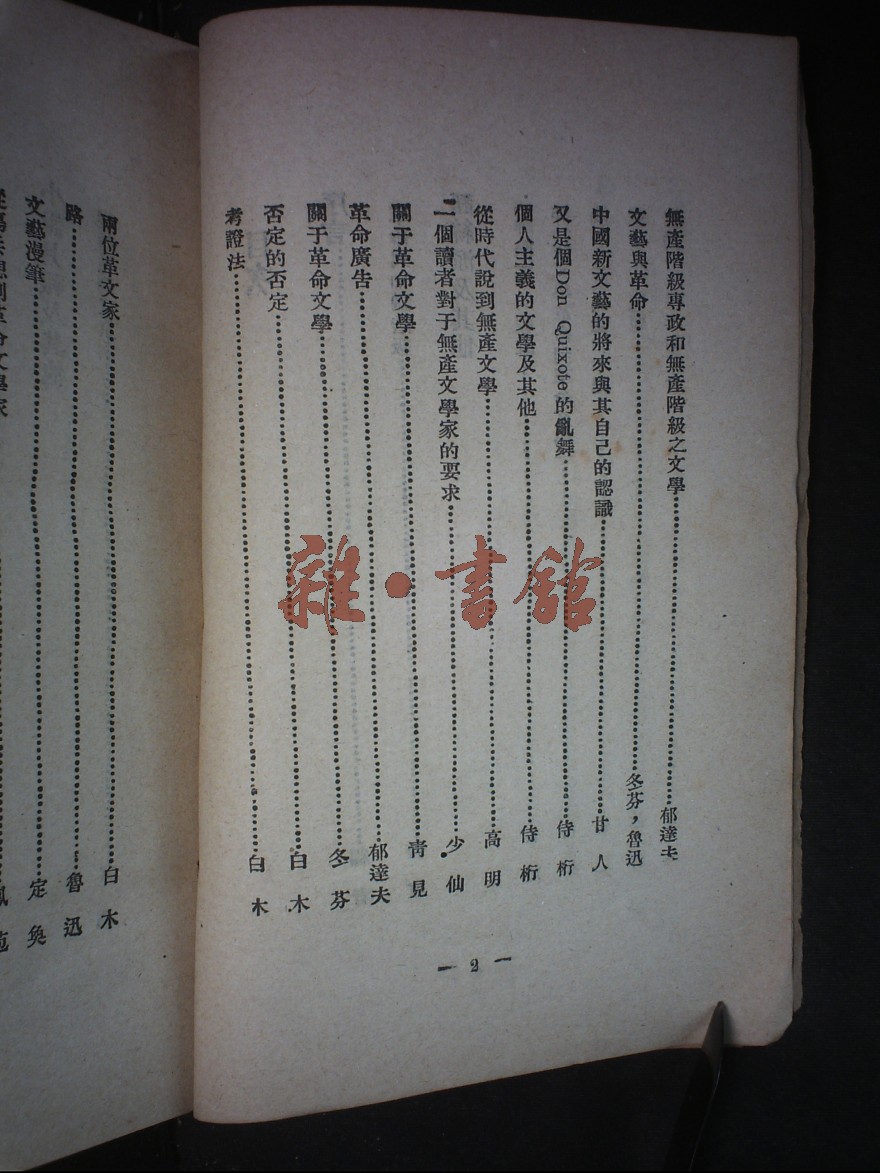 無產階級專政和無產階級之文學……郁達夫
文藝與革命……冬芬,魯迅
中國新文藝的將來與其自己的認識……甘人
又是個Don Quixote的亂舞……侍桁
個人主義的文學及其他……侍桁
從時代說到無產文學……高明
一個讀者對于無產文學家的要求……少仙
關于革命文學……青見
革命廣告……郁達夫
關于革命文學……冬芬
否定的否定……白木
考證法……白木
— 2 —
兩位革文家……白木
路……魯迅
文藝漫筆……定奐
革命文學家
雜·書館